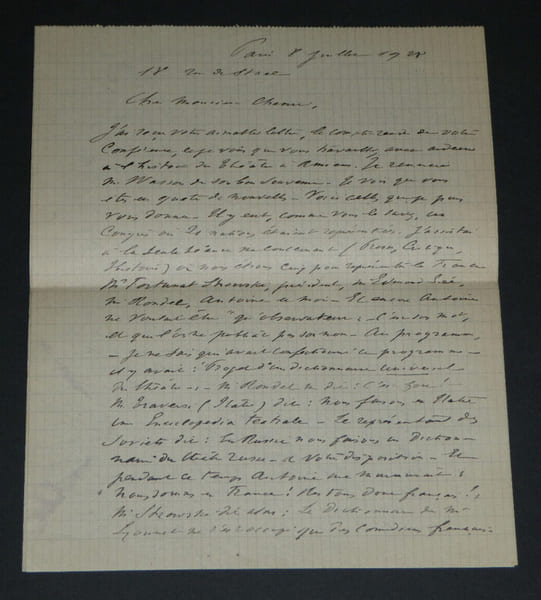 Paris 8 Juillet 1928
18 rue de Staël
Cher Monsieur
J'ai reçu votre aimable lettre, le compte rendu de votre
Conférence, et je vois que vous travaillez avec
à l'histoire du Théâtre à Amiens. Je remercie
M. de son bon souvenir. Je vois que vous
êtes en quête de nouvelles. Voici celles que je puis
vous donner. Il y eut, comme vous le savez, un
Congrès où 20 nations étaient représentées. J'assistai
à la seule séance me concernant (Presse, Critique,
Histoire) où nous étions cinq pour représenter la France
Mr Fortunat Strowski, président, M. Edmond Sée,
M. Rondel, Antoine et moi. Et encore Antoine
ne voulait être "qu'observateur": c'est son mot,
et que l'on ne publiât pas son nom. Au programme,
- je ne sais qui avait confectionné ce programme -
il y avait: Projet d'un dictionnaire universel
du théâtre. M. Rondel
M. Traversi (Italie) dit: nous faisons en Italie
une Enciclopedia teatrale. Le représentant des
Soviets dit: En Russie nous faisons un diction-
naire du théâtre russe à votre disposition. Et
pendant ce temps Antoine me murmurait:
Nous sommes en France! donc français!
M. Strowski dit alors: Le dictionnaire de M.
Lyonnet ne s'est occupé que des Comédiens français.